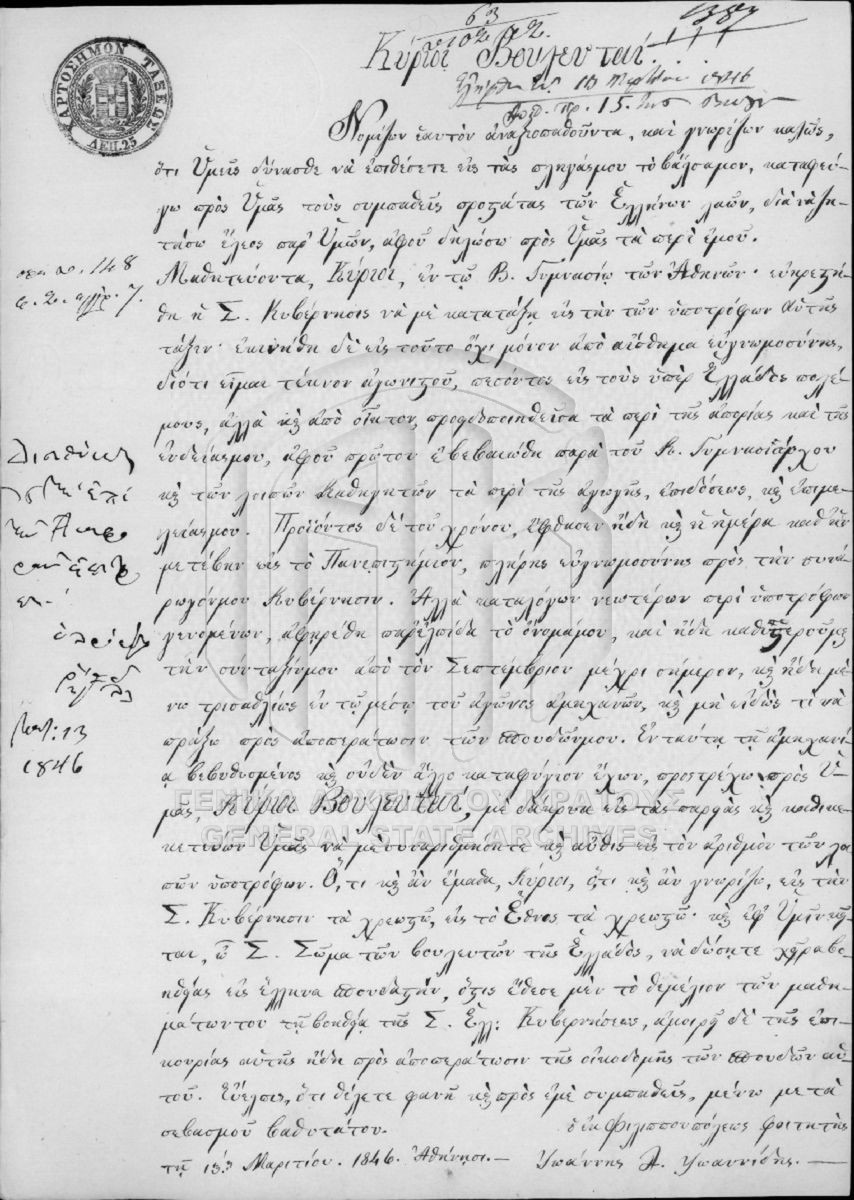 63
102
1387
Κύριοι Βουλευταί!
ΧΑΡΤΟΣΗΜΟΝ ΤΑΞΕΩΣ
ΛΕΠ. 25
1846
Νομίζων ἑαυτὸν ἀναξιοπαθοῦντα, καὶ γνωρίζων καλῶς,
ὅτι Ὑμεῖς δύνασθε νὰ ἐπιθέσετε εἰς τὰς πληγάς μου τὸ βάλσαμον, καταφεύ-
γω πρὸς Ὑμᾶς τοὺς συμπαθεῖς προστάτας τῶν Ἑλλήνων λαῶν, διὰ νὰ ζη-
τήσω ἔλεος παρ' Ὑμῶν, ἀφοῦ δηλώσω πρὸς Ὑμᾶς τὰ περὶ ἐμοῦ.
148
Μαθητεύοντα, Κύριοι, ἐν τῷ Β. Γυμνασίῳ τῶν Ἀθηνῶν· εὐηρεστή-
θη ἡ Σ. Κυβέρνησις νὰ μὲ κατατάξῃ εἰς τὴν τῶν ὑποτρόφων Αὑτῆς
τάξιν· ἐκινήθη δὲ εἰς τοῦτο ὄχι μόνον ἀπὸ αἴσθημα εὐγνωμοσύνης,
διότι εἶμαι τέκνον ἀγωνιστοῦ, πεσόντος εἰς τοὺς ὑπὲρ Ἑλλάδος πολέ-
μους, ἀλλὰ κ ἀπὸ οἶκτον, προειδοποιηθεῖσα τὰ περὶ τῆς ἀπορίας καὶ τῆς
ἐνδείας μου, ἀφοῦ πρῶτον ἐβεβαιώθη παρὰ τοῦ Κ. Γυμνασιάρχου
κ τῶν λοιπῶν Καθηγητῶν τὰ περὶ τῆς ἀγωγῆς, ἐπιδόσεως, κ ἐπιμε-
λείας μου. Προϊόντος δὲ τοῦ χρόνου, ἔφθασεν ἤδη κ ἡ ἡμέρα καθ' ἣν
μετέβην εἰς τὸ Πανεπιστήμιον, πλήρης εὐγνωμοσύνης πρὸς τὴν συνά-
ρωγόν μου Κυβέρνησιν. Ἀλλὰ καταλόγων νεωτέρων περὶ ὑποτρόφων
γενομένων, ἀφῃρέθη παρ' ἐλπίδα τὸ ὄνομά μου, καὶ ἤδη καθυστεροῦμαι
τὴν σύνταξίν μου ἀπὸ τὸν Σεπτέμβριον μέχρι σήμερον, κ ἤδη μέ-
νω τρισαθλίως ἐν τῷ μέσῳ τοῦ ἀγῶνος ἀμηχανῶν, κ μὴ εἰδὼς τί νὰ
πράξω πρὸς ἀποπεράτωσιν τῶν σπουδῶν μου. Ἐν ταύτῃ τῇ ἀμηχανί-
ᾳ βεβυθισμένος κ οὐδὲν ἄλλο καταφύγιον ἔχων, προστρέχω πρὸς Ὑ-
μᾶς, Κύριοι Βουλευταί, μὲ δάκρυα εἰς τὰς παρειὰς κ καθικε-
κετεύων Ὑμᾶς νὰ μὲ συναριθμήσητε κ αὖθις εἰς τὸν ἀριθμὸν τῶν λοι-
πῶν ὑποτρόφων. Ὅ,τι κ ἂν ἔμαθα, Κύριοι, ὅ,τι κ ἂν γνωρίζω, εἰς τὴν
Σ. Κυβέρνησιν τὰ χρεωστῶ, εἰς τὸ Ἔθνος τὰ χρεωστῶ· κ ἐφ' Ὑμῖν κεῖ-
ται, ὦ Σ. Σῶμα τῶν βουλευτῶν τῆς Ἑλλάδος, νὰ δώσητε χεῖρα βο-
ηθείας εἰς ἕλληνα σπουδαστήν, ὅστις ἔθεσε μὲν τὸ θεμέλιον τῶν μαθη-
μάτων του τῇ βοηθείᾳ τῆς Σ. Ἑλλ: Κυβερνήσεως, ἀμοιρεῖ δὲ τῆς ἐπι-
κουρίας αὐτῆς ἤδη πρὸς ἀποπεράτωσιν τῆς οἰκοδομῆς τῶν σπουδῶν αὑ-
τοῦ. Εὔελπις, ὅτι θέλετε φανῆ κ πρὸς ἐμὲ συμπαθεῖς, μένω μετὰ
σεβασμοῦ βαθυτάτου.
ὁ ἐκ Φιλιππουπόλεως φοιτητὴς
τῇ 13ῃ Μαρτίου. 1846. Ἀθήνησι.— Ἰωάννης Α. Ἰωαννίδης.—
13
1846
ΓΕΝΙΚΑ ΑΡΧΕΙΑ ΤΟΥ ΚΡΑΤΟΥΣ
GENERAL STATE ARCHIVES